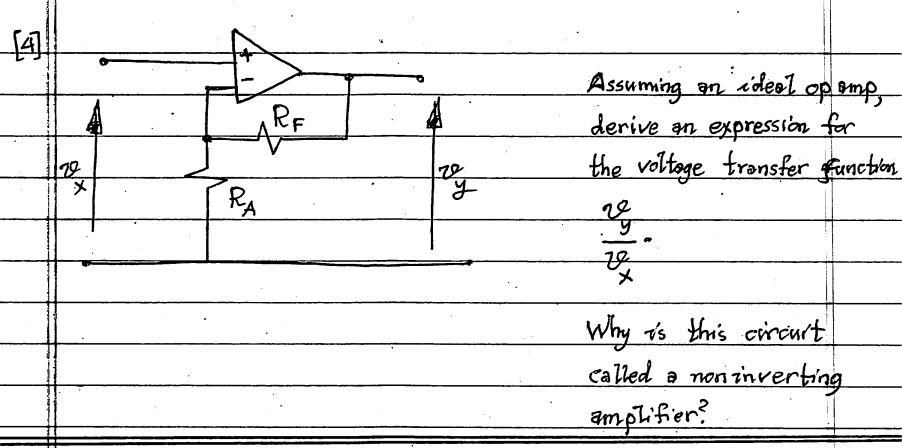 [4]
+
−
R_F
v_x
R_A
v_y
Assuming an ideal op amp,
derive an expression for
the voltage transfer function
v_y
v_x
.
Why is this circuit
called a noninverting
amplifier?